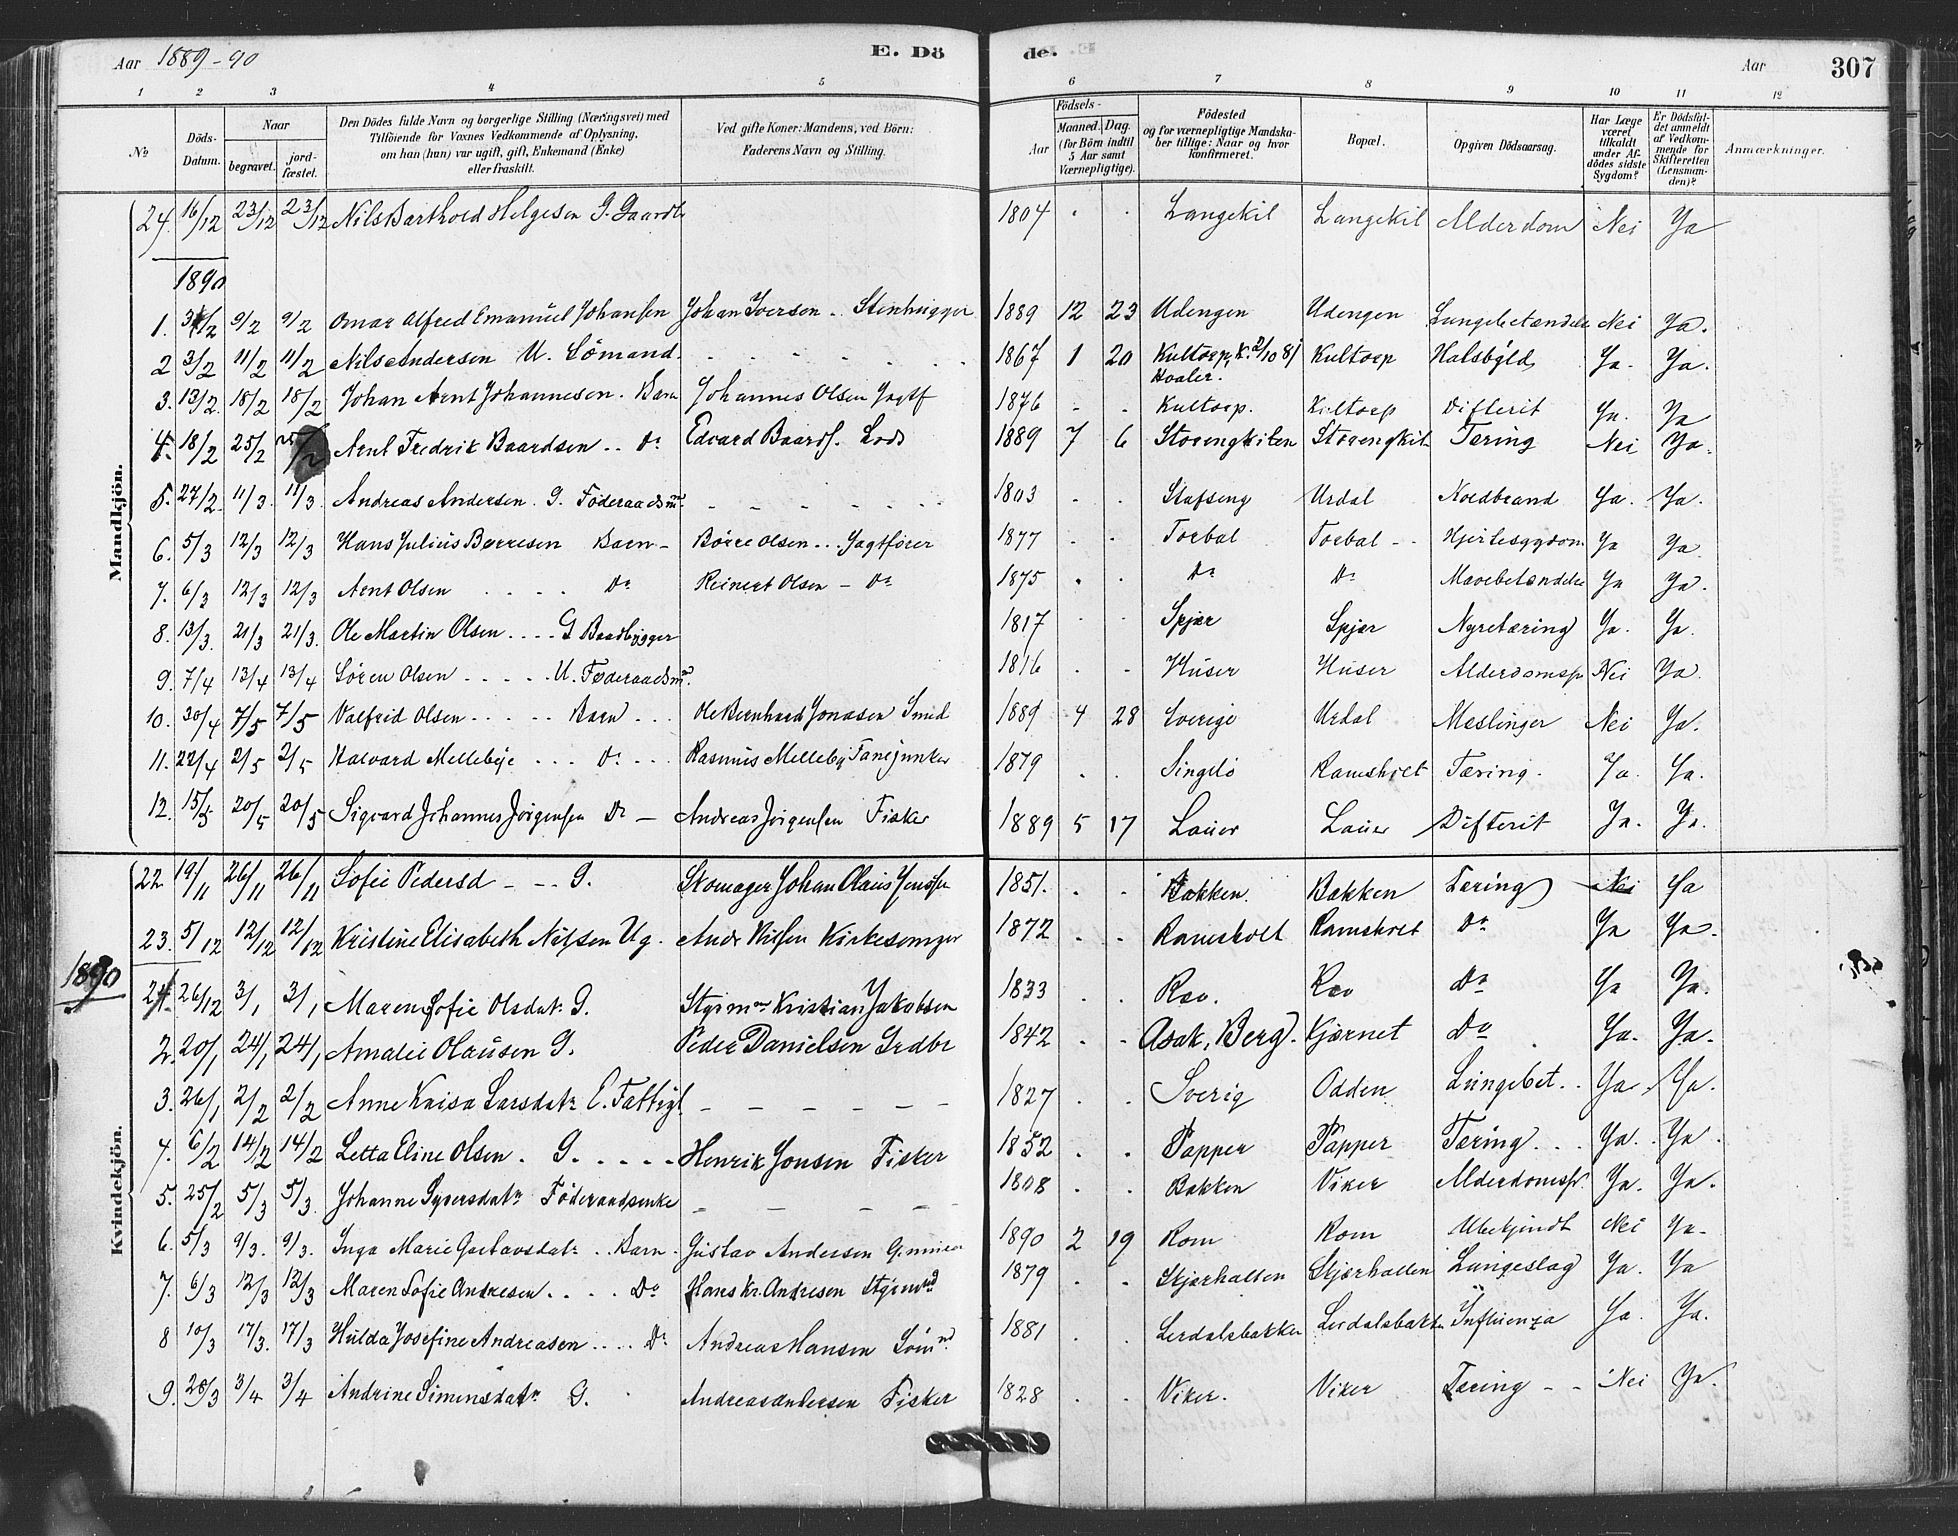 Aar 1889-90 E. Dö de. Aar 307
1 2 3 4 5 6 7 8 9 10 11 12
No Döds-Datum. Naar begravet. jord-fæstet. Den Dödes fulde Navn og borgerlige Stilling (Næringsvei) med Tilföiende for Voxnes Vedkommende af Oplysning, om han (hun) var ugift, gift, Enkemand (Enke) eller fraskilt. Ved gifte Koner: Mandens, ved Börn: Faderens Navn og Stilling. Födsels- Aar Maaned. Dag. (for Börn indtil 5 Aar samt Værnepligtige). Födested og for værnepligtige Mandskaber tillige: Naar og hvor konfirmeret. Bopæl. Opgiven Dödsaarsag. Har Læge været tilkaldt under Afdödes sidste Sygdom? Er Dödsfaldet anmeldt af Vedkommende for Skifteretten (Lensmanden)? Anmærkninger.
Mandkjön.
24. 16/12 23/12 23/12 Nils Barthold Helgesen G. Gaardb 1804 Langekil Langekil Alderdom Nei Ja
1890
1. 3/2 9/2 9/2 Omar Alfred Emanuel Johansen Johan Iversen Stenhugger 1889 12 23 Udengen Udengen Lungebetændele Nei Ja.
2 3/2 11/2 11/2 Nils Andersen U. Sömand. 1867 1 20 Kultorp, K. 2/10 81 Hvaler. Kultorp Halsbyld Ja. Ja.
3. 13/2 18/2 18/2 Johan Arnt Johannesen. Barn Johannes Olsen Jagtf 1876 Kultorp. Kultorp Difterit Ja. Ja
4. 18/2 25/2 25/2 Arnt Fredrik Baardsen Do Edvard Baards. Lods 1889 7 6 Storengkilen Storengkil Tæring Nei Ja.
5. 27/2 11/3. 11/3 Andreas Andersen. G. Föderaadsm. 1803 Stafseng Urdal Koldbrand Ja. Ja.
6. 5/3 12/3 12/3 Hans Julius Børresen Barn Börre Olsen Jagtfører 1877 Torbal Torbal Hjertesygdom Ja Ja.
7. 6/3 12/3 12/3 Arnt Olsen Do Reinert Olsen Do 1875 Do Do Mavebetændelse Ja Ja.
8. 13/3. 21/3 21/3. Ole Martin Olsen G Baadbygger 1817 Spjær Spjær Nyretæring Ja. Ja.
9. 7/4 13/4 13/4 Søren Olsen U. Føderaadsm. 1816 Huser Huser Alderdomssv Nei Ja.
10. 30/4 7/5 7/5 Valfrid Olsen Barn Ole Bernhard Jonasen Smed 1889 4 28 Sverige Urdal Meslinger Nei Ja.
11. 22/4 2/5 2/5 Halvard Mellebye Do Rasmus Melleby Fanejunker 1879 Singelö Ramshvlt Tæring. Ja. Ja.
12. 15/5 20/5 20/5 Sigvard Johannes Jörgensen Do Andreas Jörgensen Fisker 1889 5 17 Lauer Lauer Difterit Ja. Ja.
Kvindekjön.
22. 19/11 26/11 26/11 Sofie Pedersd G. Skomager Johan Olaus Jenssen 1851. Bakken. Bakken Tæring Nei Ja
23. 5/12 12/12 12/12 Kristine Elisabeth Nilsen Ug. Andr Nilsen Kirkesanger 1872 Ramshvlt Ramshvlt Do Ja Ja.
1890
24. 26/12 3/1 3/1 Maren Sofie Olsdatr G. Styrmn Kristian Jakobsen 1833 Rev. Rev Do Ja Ja.
2. 20/1 24/1 24/1 Amalie Olausen G. Peder Danielsen Grdbr 1842 Asak, Berg. Kjærnet Do Ja. Ja.
3. 26/1 2/2 2/2 Anne Kaisa Larsdatr E. Fattigl 1827 Sverig Odden Lungebet. Ja. Ja.
4. 6/2 14/2 14/2 Letta Eline Olsen. G. Henrik Jonsen Fisker 1852 Papper Papper Tæring Ja. Ja.
5. 25/2 5/3 5/3. Johanne Syversdatr Föderaadsenke 1808 Bakken Viker Alderdomssv. Ja. Ja.
6. 5/3 9/3. 9/3. Inga Marie Gustavsdatr Barn. Gustav Andersen 1890 2 19 Rom Rom Ubekjendt Nei Ja.
7. 6/3 12/3 12/3 Maren Sofie Andresen Do Hans Kr. Andresen Styrmnd 1879 Skjærhallen Skjærhallen Lungeslag Ja. Ja
8 10/3 17/3. 17/3 Hulda Josefine Andreasen Do Andreas Hansen Sömnd. 1881 Lerdalsbakken Lerdalsbakken Influenza Ja. Ja.
9. 28/3 3/4 3/4 Andrine Simensdatr G. Andreas Andersen Fisker 1828 Viker. Viker Tæring Nei Ja.